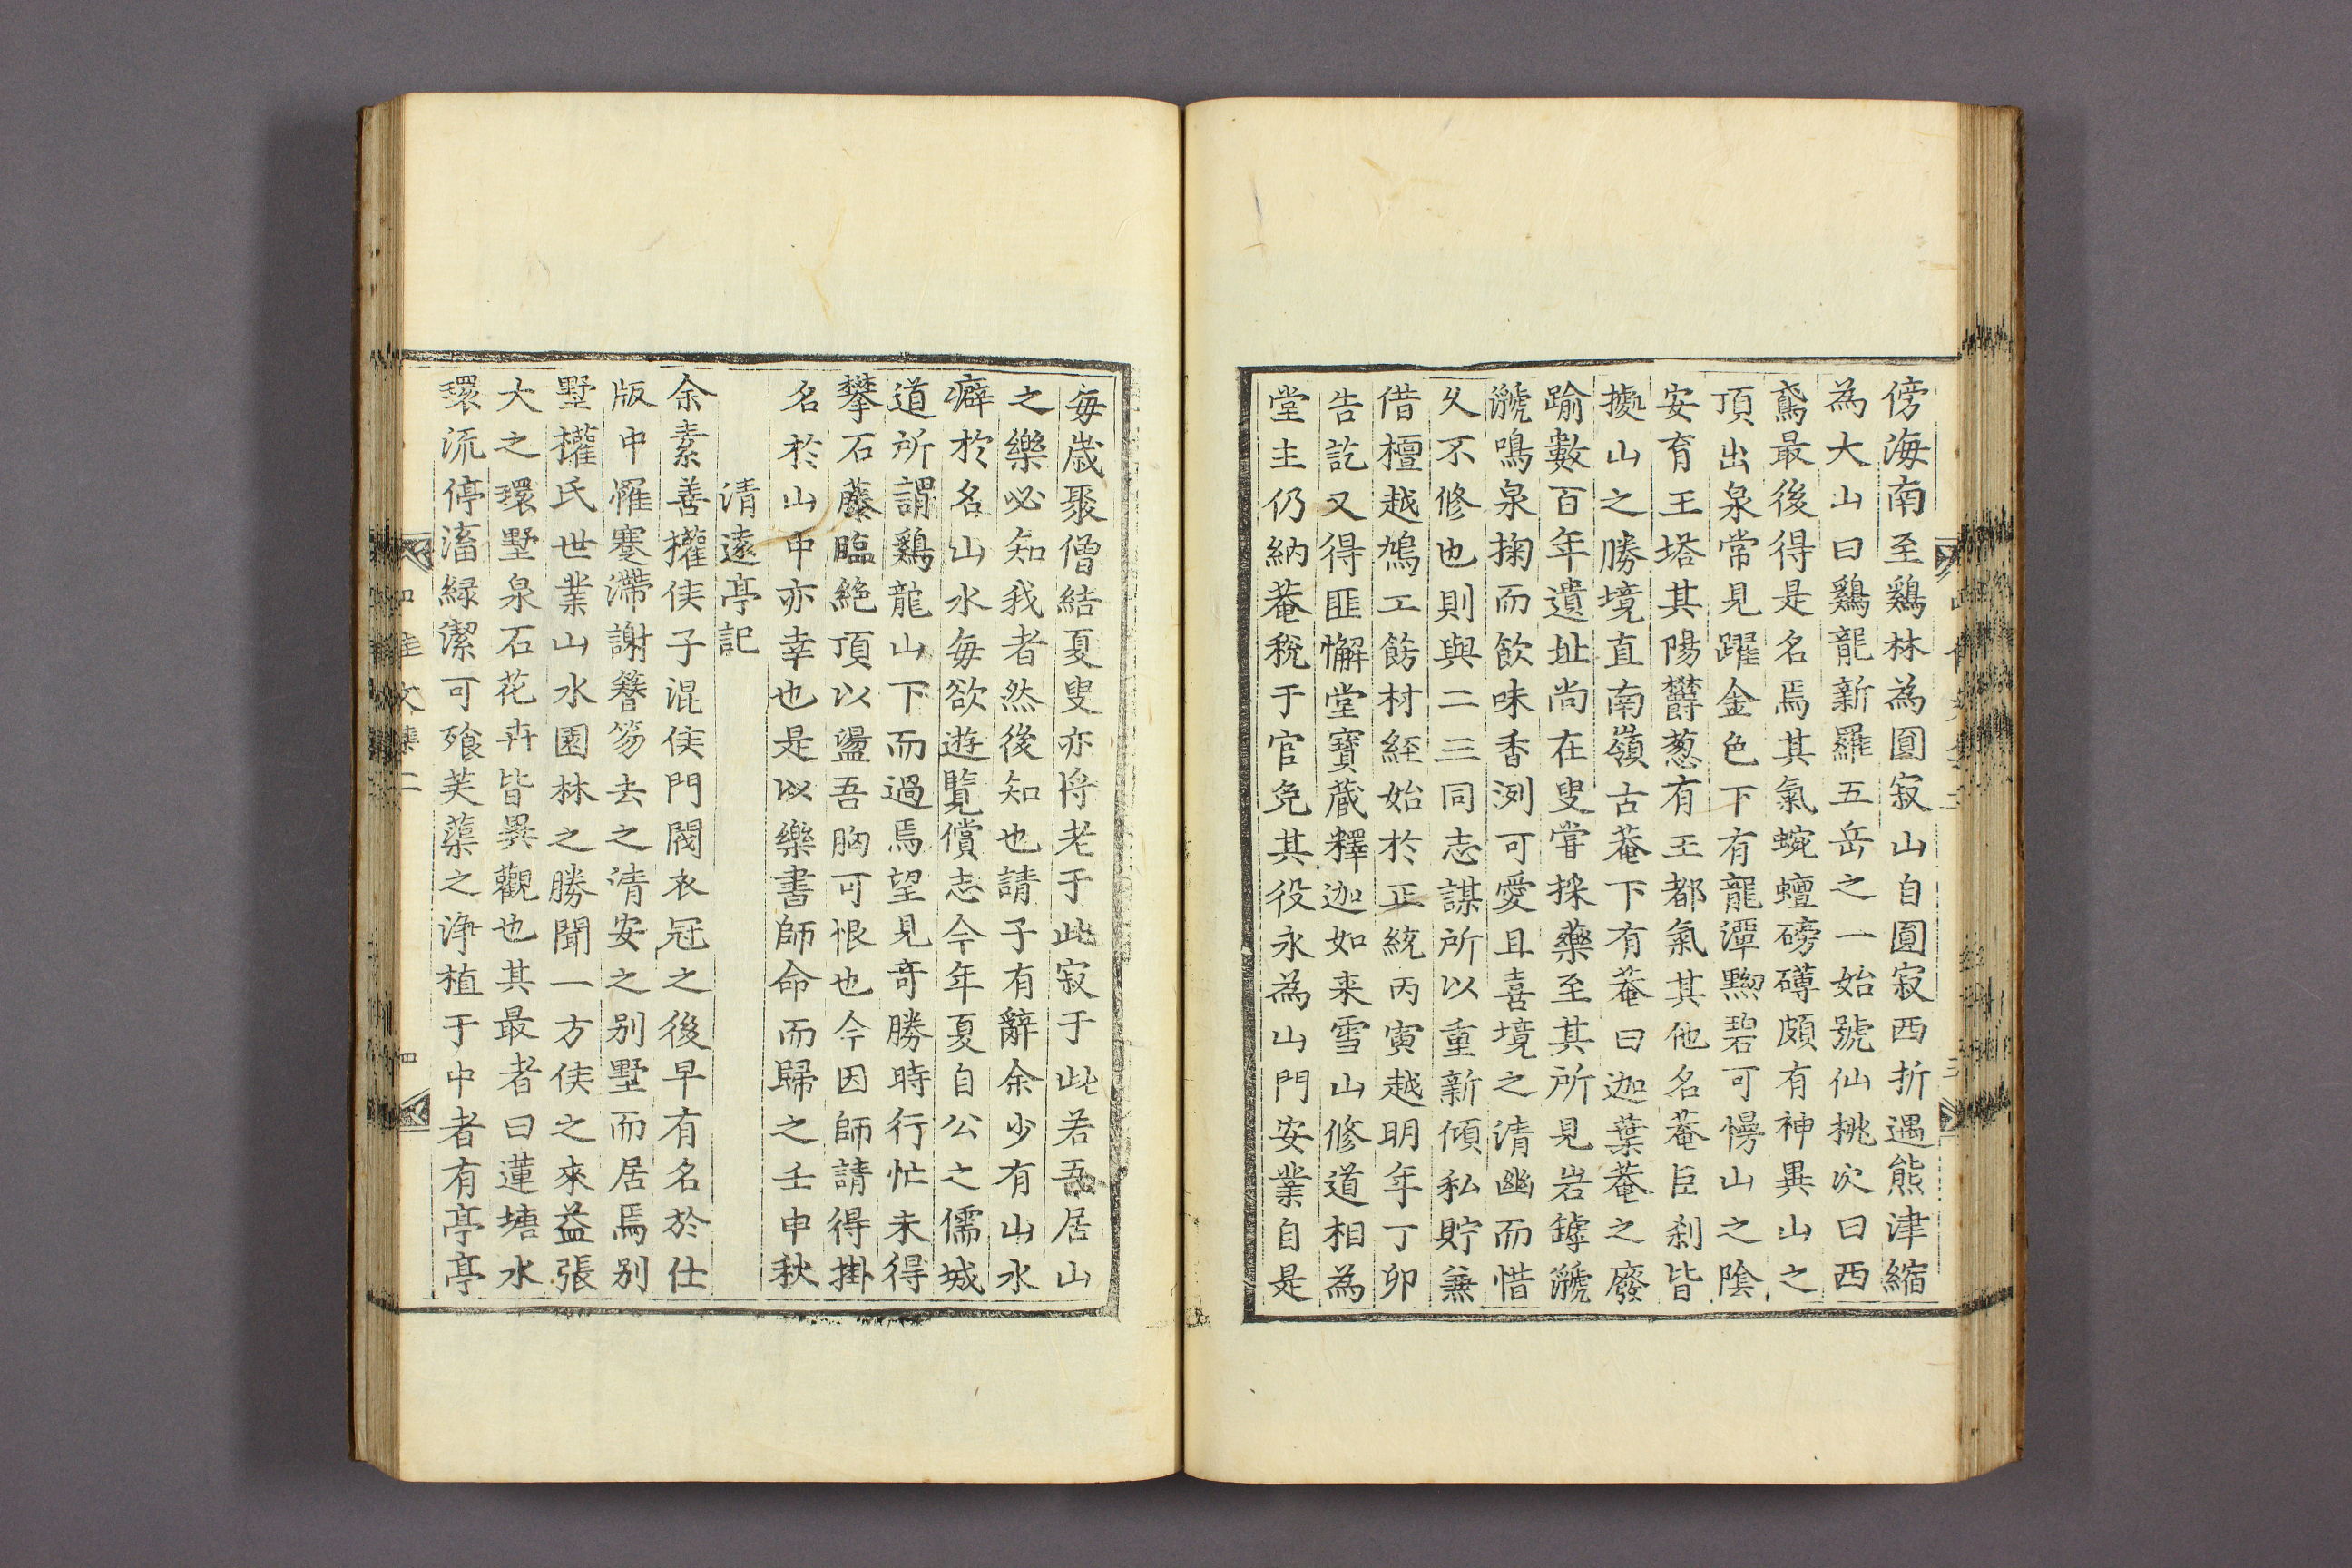 傍海南至鷄林為圓寂山自圓寂西折遇熊津縮
為大山曰鷄龍新羅五岳之一始號仙桃次曰西
鳶最後得是名焉其氣蜿蟺磅礴頗有神異山之
頂出泉常見躍金色下有龍潭黝碧可愕山之陰
安育王塔其陽欝葱有王都氣其他名菴巨刹皆
擄山之勝境直南嶺古菴下有菴曰迦葉菴之廢
踰數百年遺址尚在叟甞採藥至其所見岩罅㶁
㶁鳴泉掬而飲味香洌可愛且喜境之清幽而惜
久不修也則與二三同志謀所以重新傾私貯兼
借檀越鳩工飭材経始於正統丙寅越明年丁卯
告訖又得匪懈堂寶蔵釋迦如来雪山修道相為
堂主仍納菴稅于官免其役永為山門安業自是
毎歳聚僧結夏叟亦将老于此寂于此若吾居山
之樂必知我者然後知也請子有辭余少有山水
癖於名山水毎欲遊覽償志今年夏自公之儒城
道所謂鷄龍山下而過焉望見竒勝時行忙未得
攀石藤臨絶頂以盪吾胸可恨也今因師請得掛
名於山中亦幸也是以樂書師命而歸之壬申秋
清遠亭記
余素善權侯子混侯門閥衣冠之後早有名於仕
版中罹蹇滯謝簪笏去之清安之别墅而居焉别
墅權氏世業山水園林之勝聞一方侯之來益張
大之環墅泉石花卉皆異觀也其最者曰蓮塘水
環流停滀緑潔可飱芙蕖之浄植于中者有亭亭